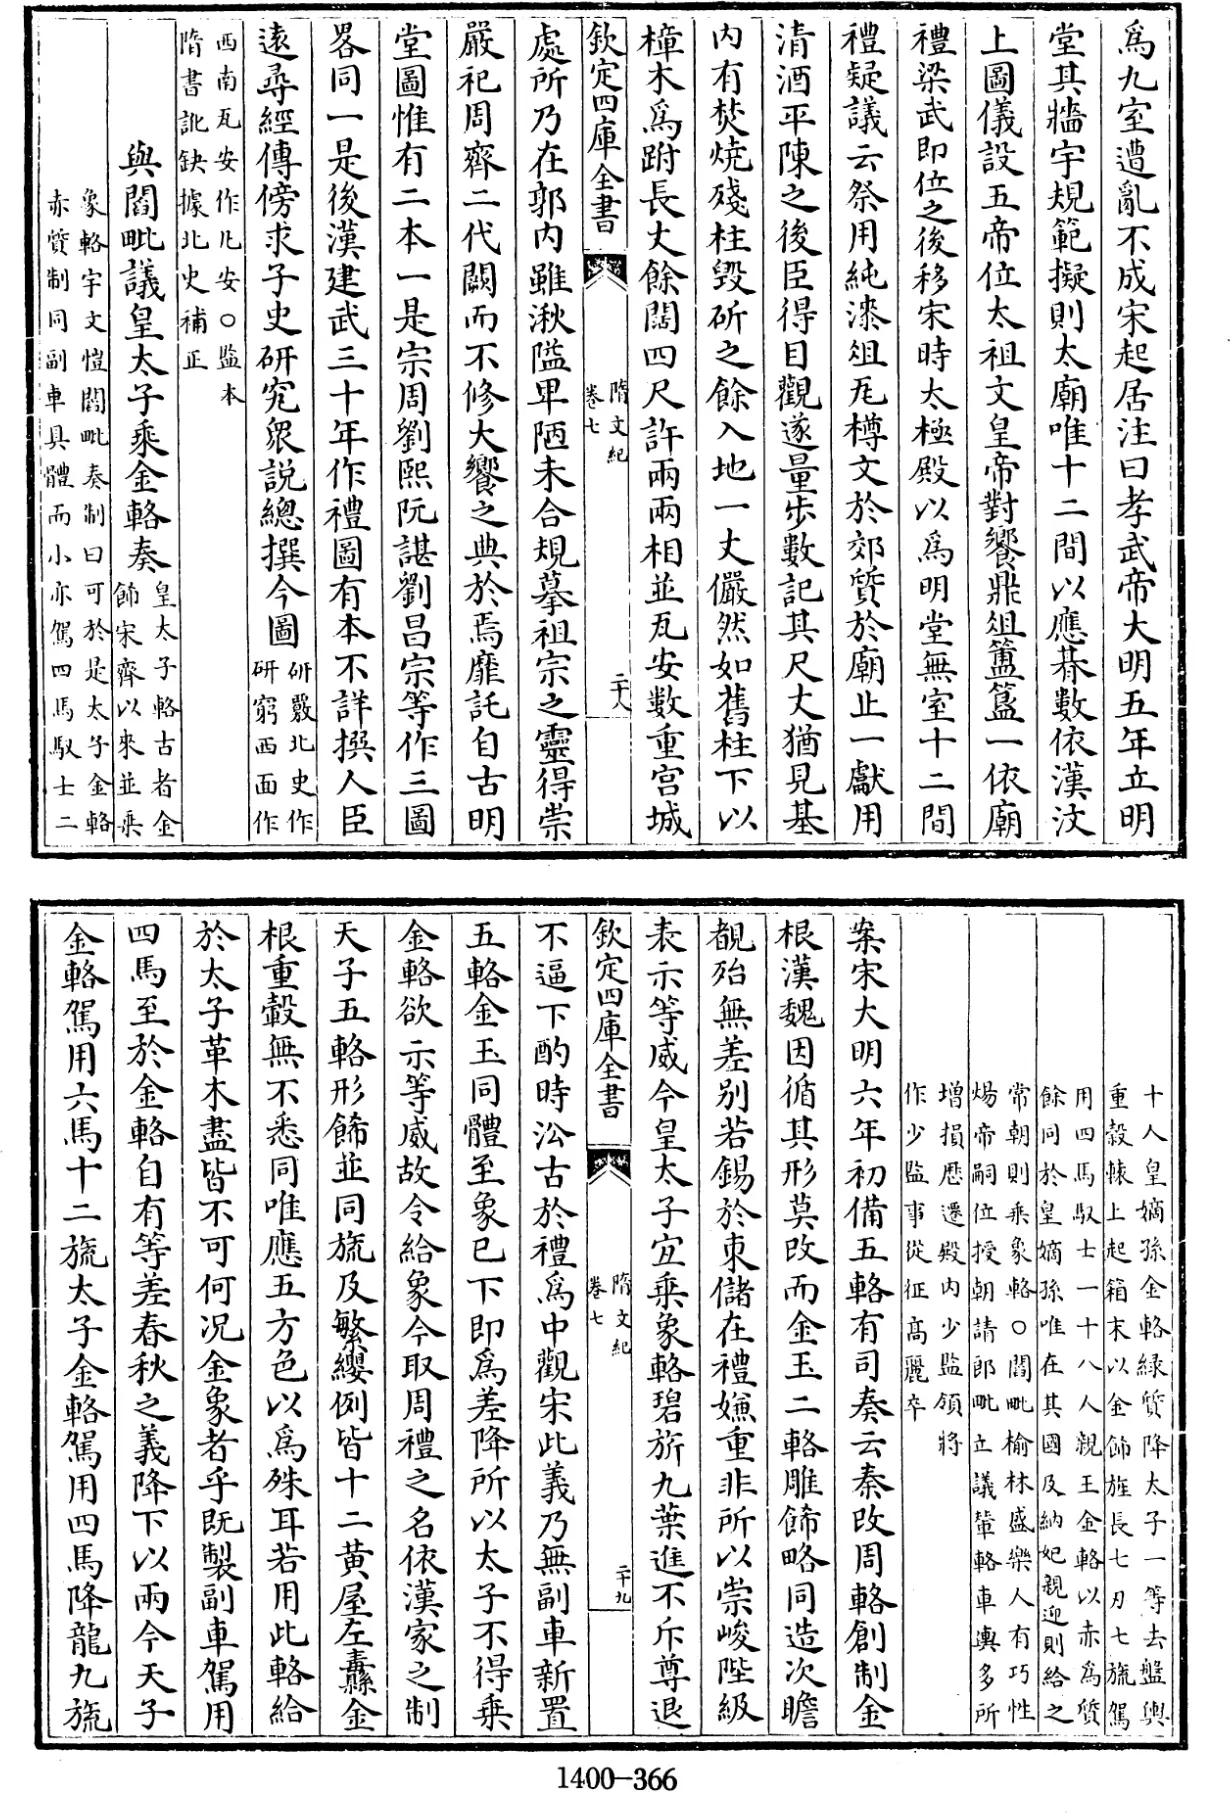 爲九室遭亂不成宋起居注曰孝武帝大明五年立明
堂其牆宇規範擬則太廟唯十二間以應朞數依漢汶
上圖儀設五帝位太祖文皇帝對饗鼎俎簠簋一依廟
禮梁武即位之後移宋時太極殿以爲明堂無室十二間
禮疑議云祭用純漆俎瓦樽文於郊質於廟止一獻用
清酒平陳之後臣得目觀遂量步數記其尺丈猶見基
内有焚燒殘柱毁斫之餘入地一丈儼然如舊柱下以
樟木爲跗長丈餘闊四尺許兩兩相並瓦安數重宫城
欽定四庫全書 隋文紀 卷七 二十八
處所乃在郭内雖湫隘卑陋未合規摹祖宗之靈得崇
嚴祀周齊二代闕而不修大饗之典於焉靡託自古明
堂圖惟有二本一是宗周劉熙阮諶劉昌宗等作三圖
畧同一是後漢建武三十年作禮圖有本不詳撰人臣
逺尋經傳傍求子史研究衆説總撰今圖
研覈北史作
研窮西面作
西南瓦安作凡安○監本
隋書訛缺據北史補正
與閻毗議皇太子乘金輅奏
皇太子輅古者金
飾宋齊以來並乘
象輅宇文愷閻毗奏制曰可於是太子金輅
赤質制同副車具體而小亦駕四馬馭士二
十人皇嫡孫金輅緑質降太子一等去盤輿
重轂轓上起箱末以金飾旌長七刃七旒駕
用四馬馭士一十八人親王金輅以赤爲質
餘同於皇嫡孫唯在其國及納妃親迎則給之
常朝則乘象輅○閻毗榆林盛樂人有巧性
煬帝嗣位授朝請郎毗立議輦輅車輿多所
增損歷遷殿内少監領將
作少監事從征髙麗卒
案宋大明六年初備五輅有司奏云秦改周輅創制金
根漢魏因循其形莫改而金玉二輅雕飾略同造次瞻
覩殆無差别若錫於東儲在禮嫌重非所以崇峻陛級
表示等威今皇太子宜乘象輅碧旂九葉進不斥尊退
欽定四庫全書 隋文紀 卷七 二十九
不逼下酌時沿古於禮爲中觀宋此義乃無副車新置
五輅金玉同體至象已下即爲差降所以太子不得乘
金輅欲示等威故令給象今取周禮之名依漢家之制
天子五輅形飾並同旒及繁纓例皆十二黄屋左纛金
根重轂無不悉同唯應五方色以爲殊耳若用此輅給
於太子革木盡皆不可何况金象者乎既製副車駕用
四馬至於金輅自有等差春秋之義降下以兩今天子
金輅駕用六馬十二旒太子金輅駕用四馬降龍九旒
1400-366